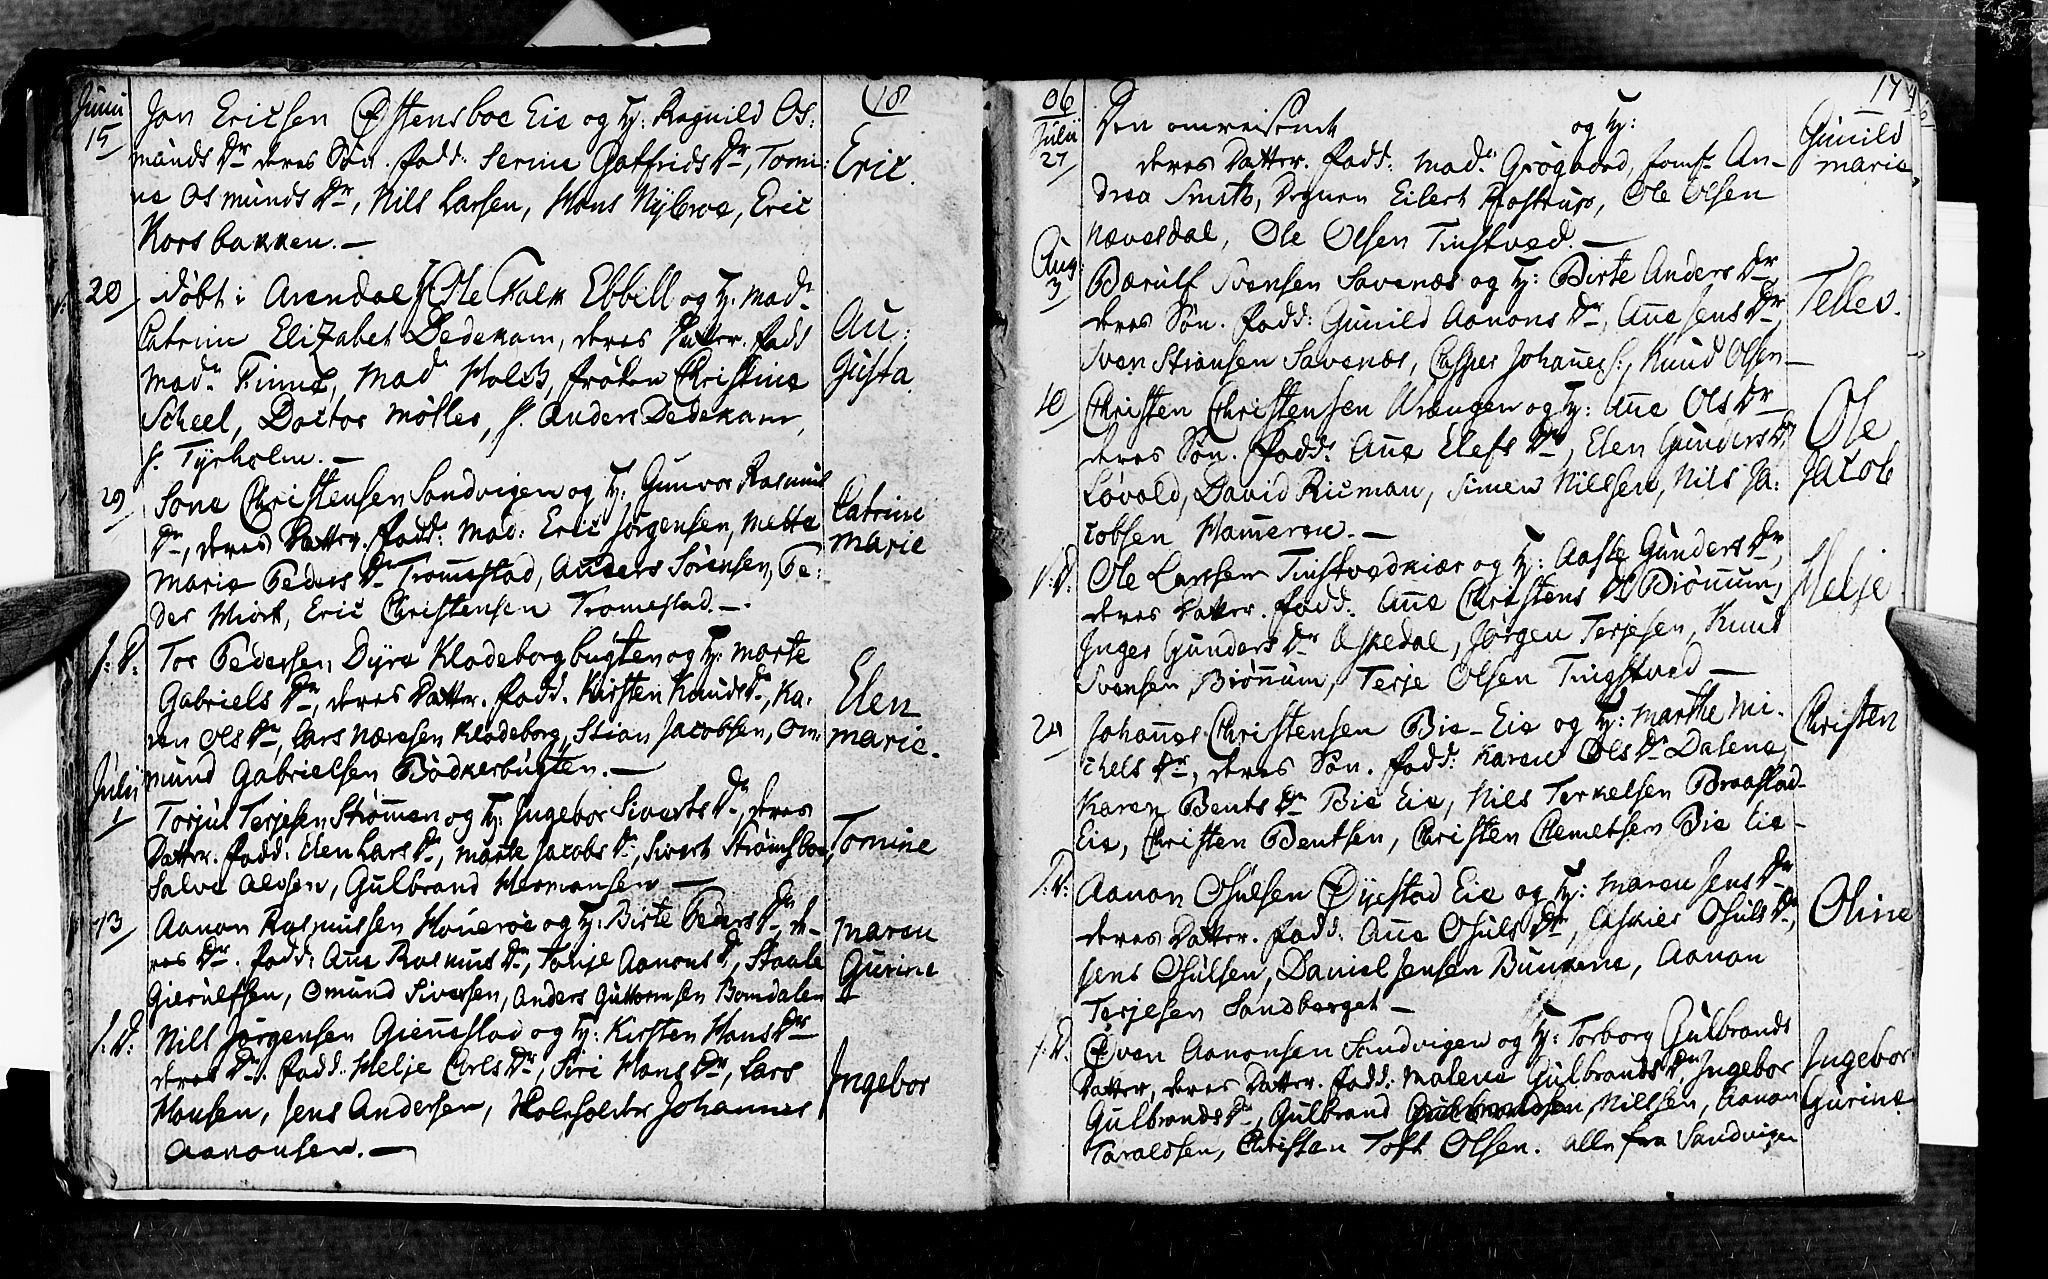 18
Junii
15
Jon Ericsen Østensboe Eie og H: Ragnild Os:
munds Dr deres Søn. fadd: Serine Gotfrids Dr, Tomi:
ne Osmunds Dr, Nils Larsen, Hans Nÿbroe, Eric
Korsbakken.—
Eric
20
døbt i Arendal Ole Falk Ebbell og H: Madm
Catrine Elizabet Dedekam, deres Datter. fadd
Madm Finne, Mad Holst, frøken Christine
Scheel, Doctor Møller, Hr Anders Dedekam,
Hr Tÿrholm.—
Au:
gusta
29
Søne Christensen Sandvigen og H: Gunvor Rasmus
Dr, deres Datter. fadd: Mad: Eric Jørgensen, Mette
Marie Peders Dr Tromestad, Anders Sørensen, Pe:
der Mørk, Eric Christensen Tromestad.—
Catrine
Marie
s: D:
Tor Pedersen Dÿre Klodeborgbugten og H: Marte
Gabriels Dr, deres Datter. fadd. Kirsten Knuds Dr, Ka:
ren Ols Dr, Lars Næresen Klodeborg, Stian Jacobsen, Om:
mund Gabrielsen Bødkerbugten.—
Elen
Marie.
Julii
1
Torjus Terjesen Strømmen og H: Ingebor Siverts Dr, deres
Datter. fadd: Elen Lars Dr, Marte Jacobs Dr, Sivert Strømsboe,
Salve Alefsen, Gulbrand Hermansen—
Tomine
13
Aanon Rasmussen Houerøe og H: Birte Peders Dr, de-
res Dr. fadd: Ane Rasmus Dr, Tarije Aanons Dr, Staale
Gierulfsen, Omund Siversen, Anders Guttormsen Bomdalen
Maren
Gurine
s: D:
Nils Jørgensen Gienestad og H: Kirsten Hans Dr
deres Dr. fadd: Helje Carls Dr, Siri Hans Dr, Lars
Hansen, Jens Andersen, Johannes
Aanonsen.—
Ingebor
06
17
Julii
27
Den omreisende og H:
deres Datter. fadd: Madm Grøgaard, Jomfr An-
drea Smith, Degnen Eilert Rostrup, Ole Olsen
Nævesdal, Ole Olsen Tinstved.—
Gunild
Marie,
Aug:
3
Bærulf Svensen Savenæs og H: Birte Anders Dr
deres Søn. fadd: Gunild Aanons Dr, Ane Jens Dr,
Sven Stiansen Savenæs, Casper Johannes: Knud Olsen—
Telles.
10
Christen Christensen Wrængen og H: Ane Ols Dr
deres Søn. fadd: Ane Elefs Dr, Elen Gunders Dr
Løvold, David Ricman, Simen Nilssen, Nils Ja:
cobsen Hameren.—
Ole
Jacob
s: D:
Ole Larssen Tinstvedkiær og H: Aasle Gunders Dr,
deres Datter. fadd: Ane Christens Dr Biønnum,
Inger Gunders Dr Askedal, Jørgen Terjesen, Knud
Svensen Biønnum, Terje Olsen Tingstved—
Helje
24
Johannes Christensen Bie-Eie og H: Marthe Mi-
chels Dr, deres Søn. fadd: Karen Ols Dr Dalene,
Karen Bents Dr Bie Eie, Nils Terkelsen Braastad-
Eie, Christen Bentsen, Christen Clemetsen Bie Eie—
Christen
s: D:
Aanon Osulsen Øyestad Eie og H: Maren Jens Dr
deres Datter. fadd: Ane Osuls Dr, Askier Osuls Dr,
Jens Osulsen, Daniel Jensen Bunkene, Aanon
Terjesen Sandberget—
Oline
s: D:
Even Aanonsen Sandvigen og H: Torborg Gulbrands
Datter, deres Datter. fadd: Malene Gulbrands Dr, Ingebor
Gulbrands Dr, Gulbrand Nilssen, Aanon
Taraldsen, Christen Toft Olsen. alle fra Sandvigen
Ingebor
Gurine